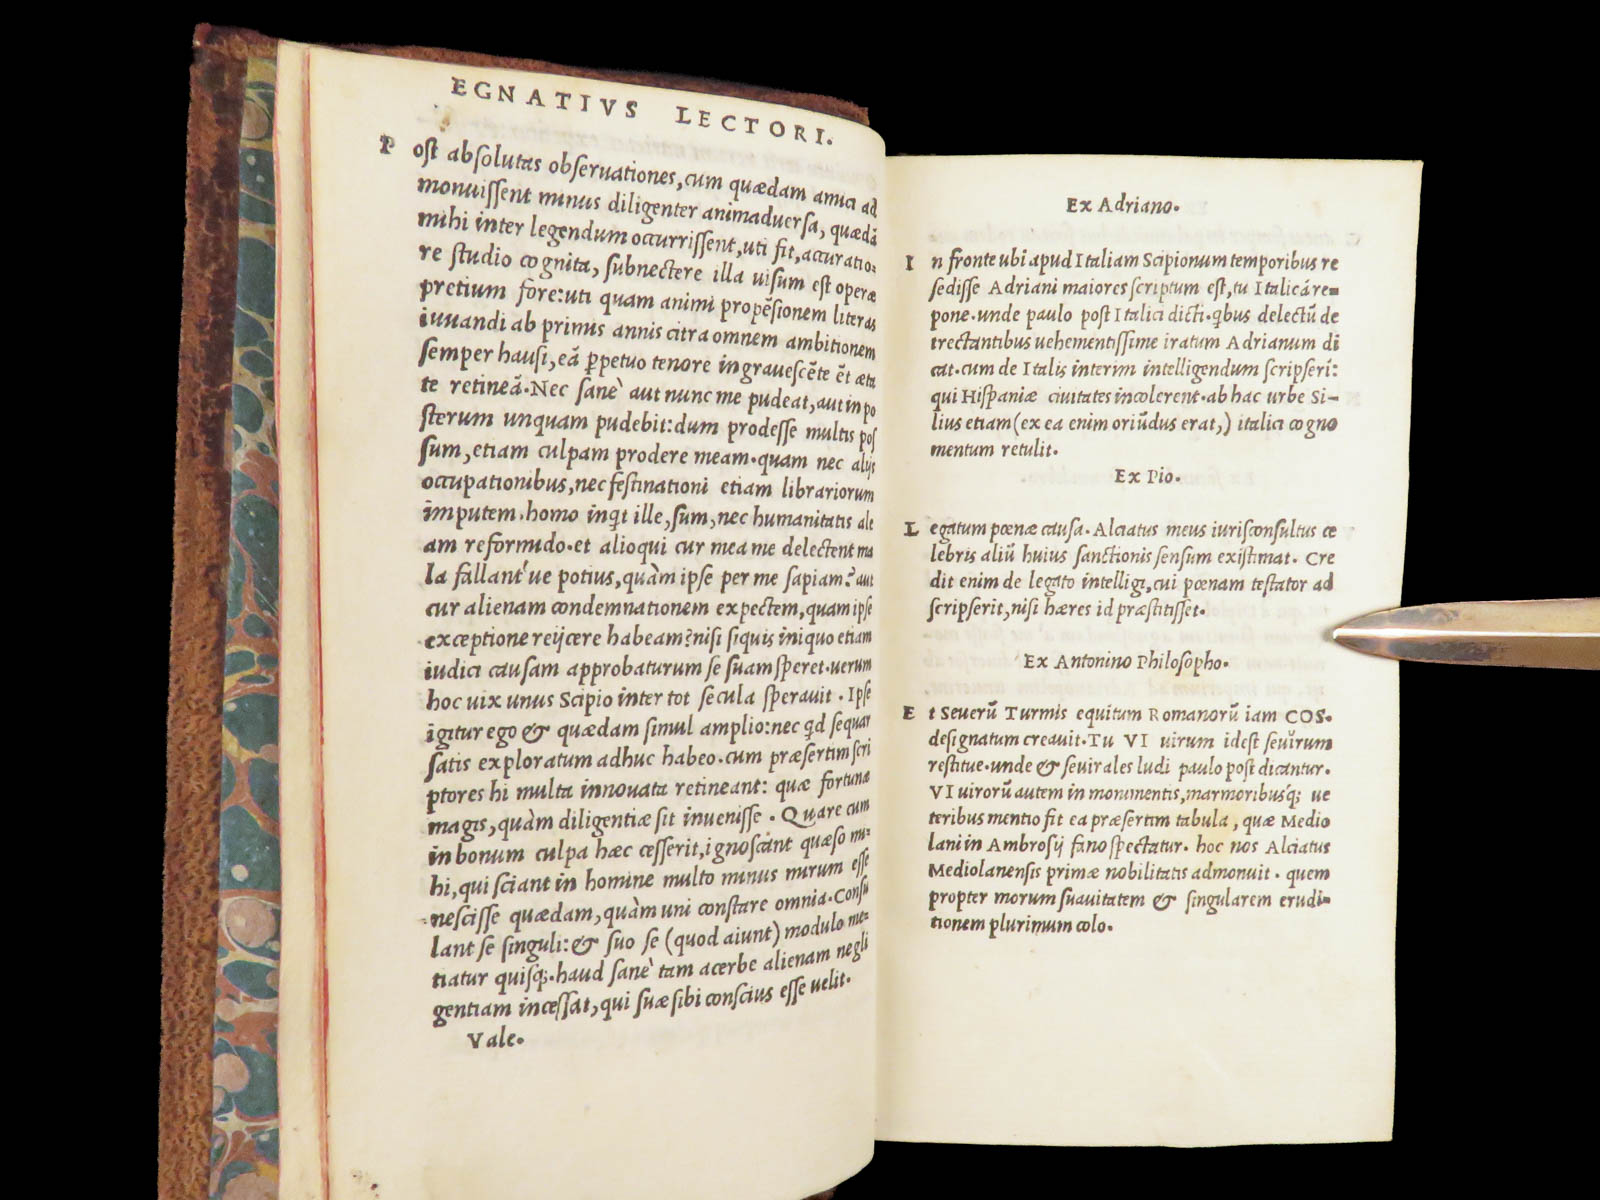 EGNATIVS LECTORI.
P ost absolutas obseruationes, cum quædam amici ad
monuissent minus diligenter animaduersa, quædã
mihi inter legendum occurrissent, uti fit, accuratio-
re studio cognita, subnectere illa uisum est operæ
pretium fore: uti quam animi propẽsionem literas
iuuandi ab primis annis citra omnem ambitionem
semper hausi, eã ꝑpetuo tenore ingrauescẽte ẽt æta
te retineã. Nec sanè aut nunc me pudeat, aut in po
sterum unquam pudebit: dum prodesse multis pos
sum, etiam culpam prodere meam. quam nec alijs
occupationibus, nec festinationi etiam librariorum
imputem. homo inqt ille, sum, nec humanitatis ale
am reformido. et alioqui cur mea me delectent ma
la fallant'ue potius, quàm ipse per me sapiam? aut
cur alienam condemnationem expectem, quam ipse
exceptione reijcere habeam? nisi siquis iniquo etiam
iudici causam approbaturum se suam speret. uerum
hoc uix unus Scipio inter tot secula sperauit. Ipse
igitur ego & quædam simul amplio: nec qd sequar
satis exploratum adhuc habeo. cum præsertim scri
ptores hi multa innouata retineant: quæ fortunæ
magis, quàm diligentiæ sit inuenisse. Quare cum
in bonum culpa hæc cesserit, ignoscant quæso mi-
hi, qui sciant in homine multo minus mirum esse
nescisse quædam, quàm uni constare omnia. Consu
lant se singuli: & suo se (quod aiunt) modulo me-
tiatur quisq;. haud sanè tam acerbe alienam negli
gentiam incessat, qui suæ sibi conscius esse uelit.
Vale.
Ex Adriano.
I n fronte ubi apud Italiam Scipionum temporibus re
sedisse Adriani maiores scriptum est, tu Italicá re-
pone. unde paulo post Italici dicti. qbus delectũ de
trectantibus uehementissime iratum Adrianum di
cat. cum de Italis interim intelligendum scripserĩ:
qui Hispaniæ ciuitates incolerent. ab hac urbe Si-
lius etiam (ex ea enim oriũdus erat,) italici cogno
mentum retulit.
Ex Pio.
L egatum pœnæ causa. Alciatus meus iurisconsultus ce
lebris aliũ huius sanctionis sensum existimat. Cre
dit enim de legato intelligi, cui pœnam testator ad
scripserit, nisi hæres id præstitisset.
Ex Antonino Philosopho.
E t Seuerũ Turmis equitum Romanorũ iam COS.
designatum creauit. Tu VI uirum idest seuirum
restitue. unde & seuirales ludi paulo post dicantur.
VI uirorũ autem in monimentis, marmoribus'q; ue
teribus mentio fit ea præsertim tabula, quæ Medio
lani in Ambrosij fano spectatur. hoc nos Alciatus
Mediolanensis primæ nobilitatis admonuit. quem
propter morum suauitatem & singularem erudi-
tionem plurimum colo.